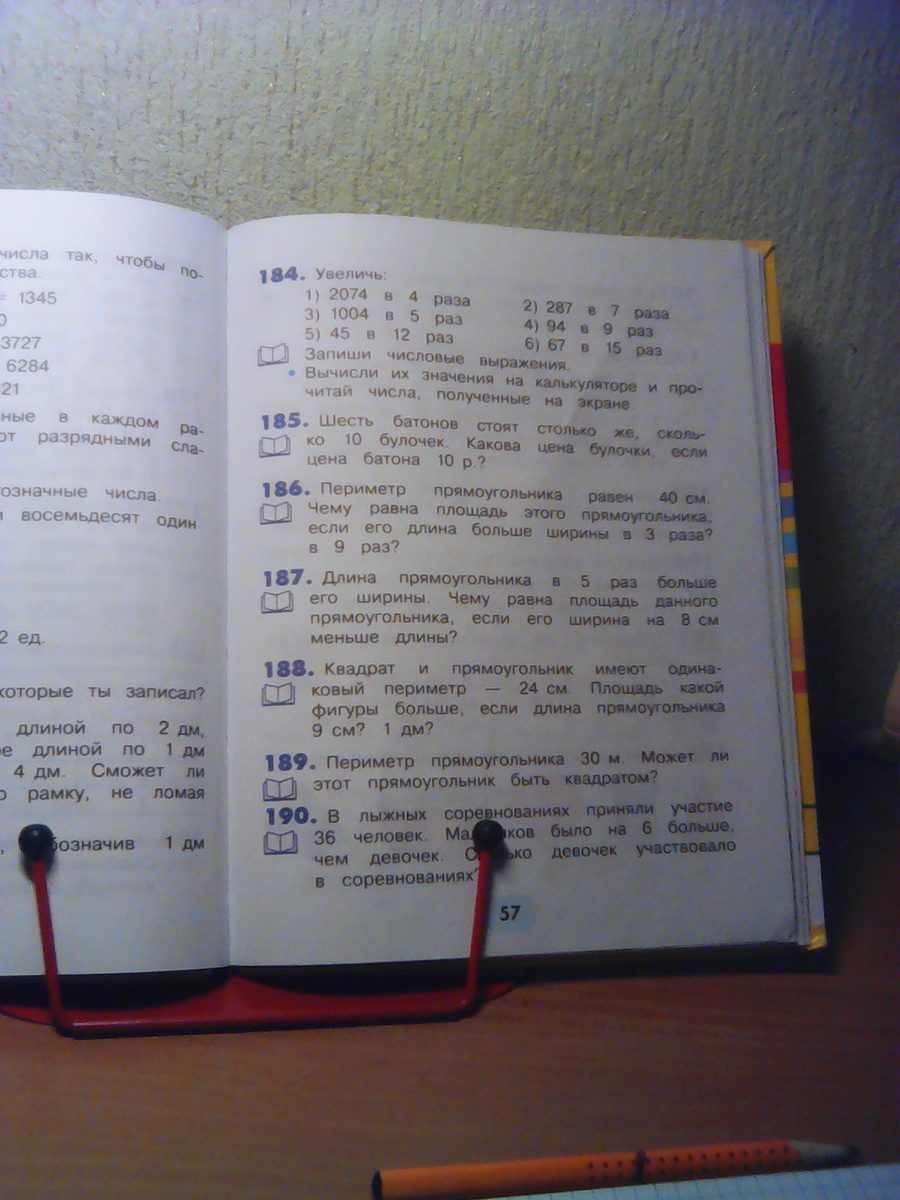 числа так, чтобы по-
ства.
= 1345
0
3727
6284
421
ные в каждом ра-
от разрядными сла-
означные числа.
и восемьдесят один
2 ед.
которые ты записал?
длиной по 2 дм,
е длиной по 1 дм
4 дм. Сможет ли
о рамку, не ломая
, обозначив 1 дм
184. Увеличь:
1) 2074 в 4 раза 2) 287 в 7 раза
3) 1004 в 5 раз 4) 94 в 9 раз
5) 45 в 12 раз 6) 67 в 15 раз
Запиши числовые выражения.
• Вычисли их значения на калькуляторе и про-
читай числа, полученные на экране.
185. Шесть батонов стоят столько же, сколь-
ко 10 булочек. Какова цена булочки, если
цена батона 10 р.?
186. Периметр прямоугольника равен 40 см.
Чему равна площадь этого прямоугольника,
если его длина больше ширины в 3 раза?
в 9 раз?
187. Длина прямоугольника в 5 раз больше
его ширины. Чему равна площадь данного
прямоугольника, если его ширина на 8 см
меньше длины?
188. Квадрат и прямоугольник имеют одина-
ковый периметр — 24 см. Площадь какой
фигуры больше, если длина прямоугольника
9 см? 1 дм?
189. Периметр прямоугольника 30 м. Может ли
этот прямоугольник быть квадратом?
190. В лыжных соревнованиях приняли участие
36 человек. Мальчиков было на 6 больше,
чем девочек. Сколько девочек участвовало
в соревнованиях?
57